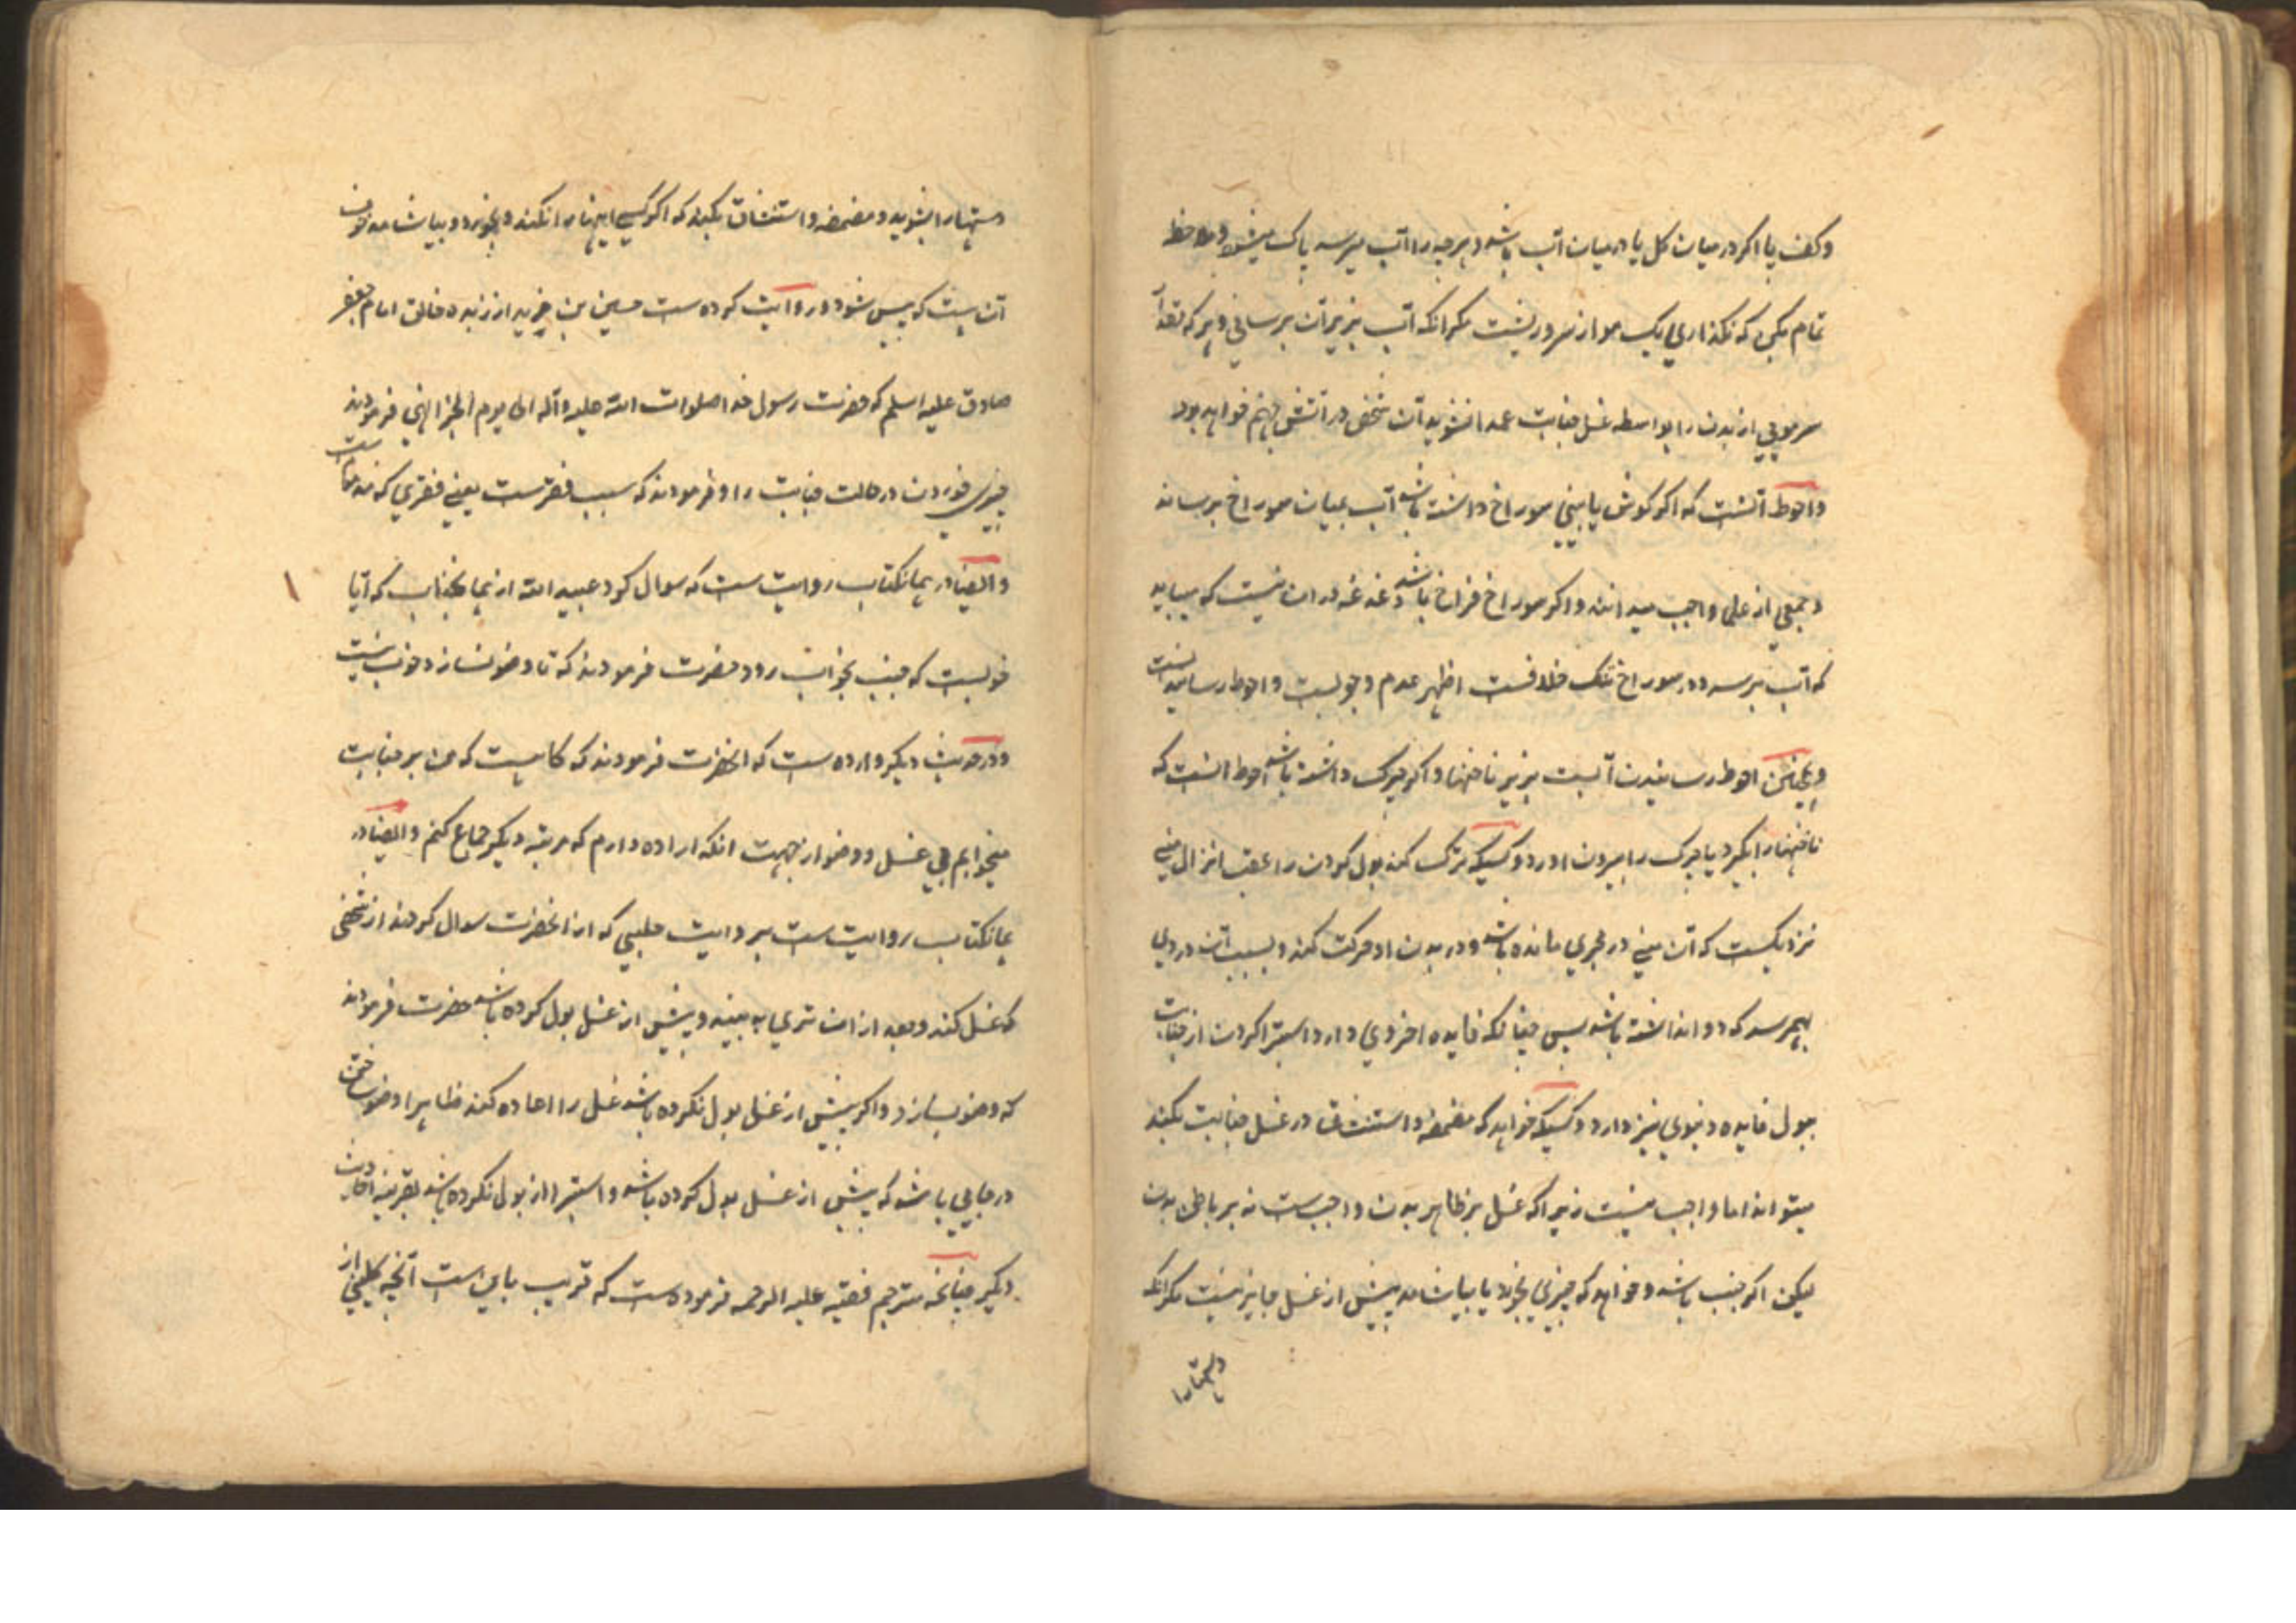 وکف پا اکر در میان کل یا در میان آب باشد و هرچه را آب میرسد پاک میشود و ملاحظه
تمام بکن که نکذاری یک مو از سر و ریشت مکر انکه آب بزیر آن برسانی و هر که بقدر
سر مویی از بدن را بواسطه غسل جنابت عمدا نشوید آن شخص در آتش جهنم خواهد بود
و احوط آنست که اکر کوش یا بینی سوراخ داشته باشد آب بمیان سوراخ برساند
و جمعی از علما واجب میدانند و اکر سوراخ فراخ باشد دغدغه در ان نیست که میباید
که آب برسد و در سوراخ تنک خلافست اظهر عدم وجوبست و احوط رسانیدنست
و همچنین احوط رسانیدن آبست بزیر ناخنها و اکر چرک داشته باشد احوط انست که
ناخنها را بکیرد یا چرک را بیرون اورد و کسیکه ترک کند بول کردن را عقب انزال منی
نزدیکست که آن منی در مجری مانده باشد و در بدن او حرکت کند و بسبب آن دردی
بهمرسد که دوا نداشته باشد پس چنانکه فایده اخروی دارد استبرا کردن از جنابت
ببول فایده دنیوی نیز دارد و کسیکه خواهد که مضمضه و استنشاق در غسل جنابت بکند
میتواند اما واجب نیست زیرا که غسل بر ظاهر بدن واجبست نه بر باطن بدن
لیکن اکر جنب باشد و خواهد که چیزی بخورد یا بیاشامد پیش از غسل جایز نیست مکر انکه
دستهارا
دستهارا بشوید و مضمضه و استنشاق بکند که اکر کسی اینها را نکند و بخورد و بیاشامد خوف
آن است که پیس شود و روایت کرده ست حسین بن زید از زبده خلایق امام جعفر
صادق علیه اسلم که حضرت رسول خدا صلوات الله علیه و آله الی یوم الجزا نهی فرمودند
چیزی خوردن در حالت جنابت را و فرمودند که سبب فقرست یعنی فقری که مذموم است
و ایضا در همانکتاب روایت ست که سوال کرد عبید الله از همانجناب که آیا
خوبست که جنب بخواب رود حضرت فرمودند که تا وضو نسازد خوب نیست
و در حدیث دیکر وارده ست که انحضرت فرمودند که کاهیست که من بر جنابت
میخوابم بی غسل و وضو از جهت انکه اراده دارم که مرتبه دیکر جماع کنم و ایضا در
همانکتاب روایت ست بروایت حلبی که از انحضرت سوال کردند از شخصی
که غسل کند و بعد از ان تری به بیند و پیش از غسل بول کرده باشد حضرت فرمودند
که وضو بسازد و اکر پیش از غسل بول نکرده باشد غسل را اعاده کند ظاهرا وضو ساختن
در جایی باشد که پیش از غسل بول کرده باشد و استبرا از بول نکرده باشد بقرینه احادیث
دیکر چنانچه مترجم فقیه علیه الرحمه فرموده ست که قریب باین است آنچه کلینی از